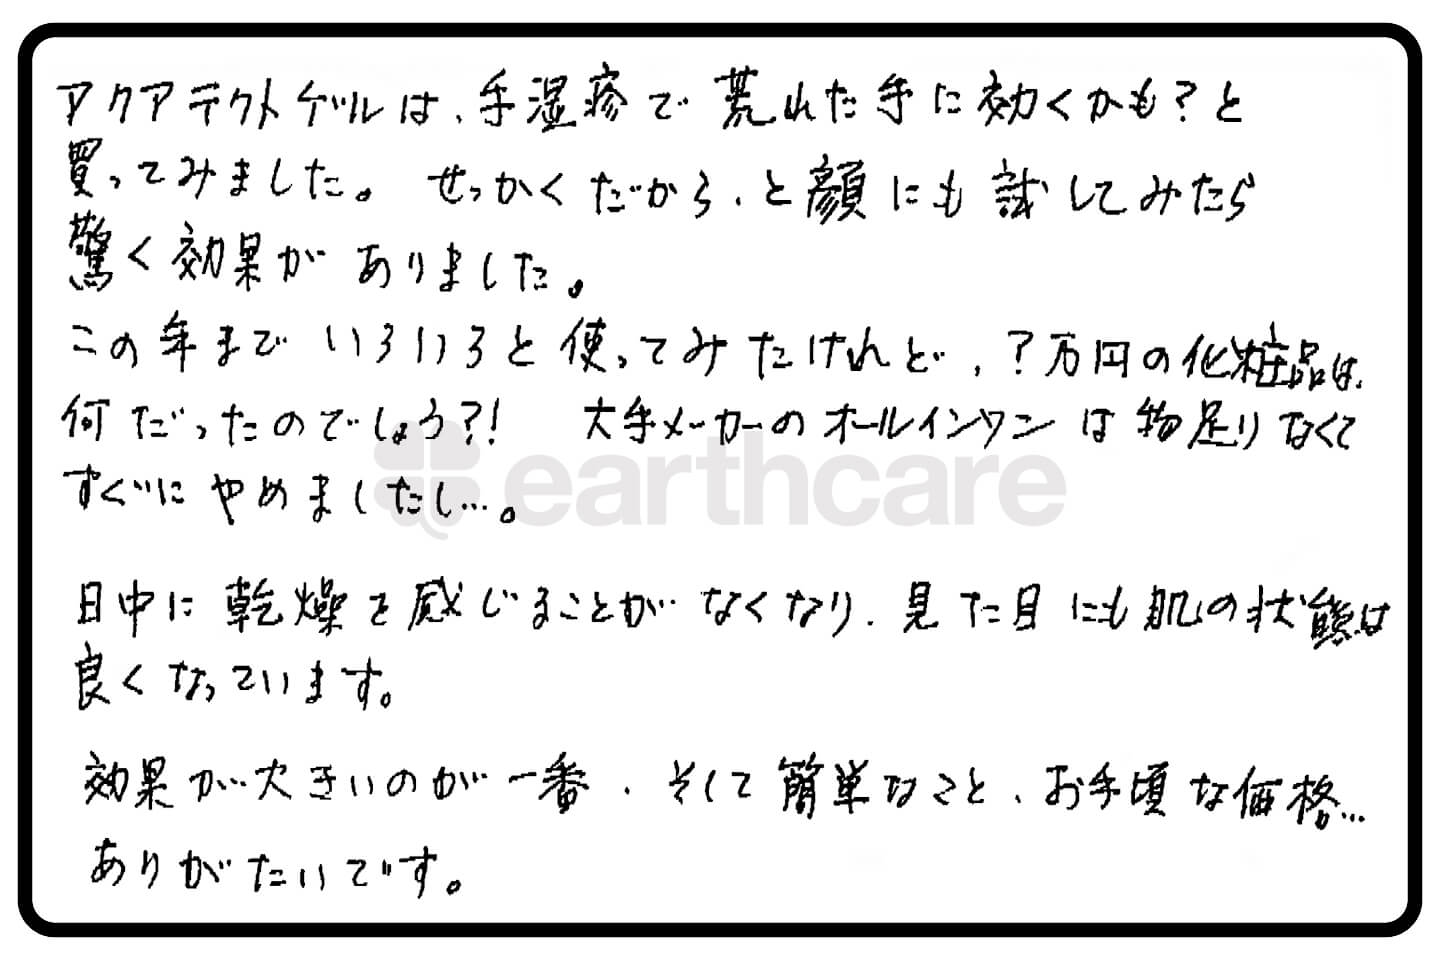 アクアテクトゲルは、手湿疹で荒れた手に効くかも？と
買ってみました。せっかくだから、と顔にも試してみたら
驚く効果がありました。
この年までいろいろと使ってみたけれど、？万円の化粧品は、
何だったのでしょう？！ 大手メーカーのオールインワンは物足りなくて
すぐにやめましたし…。
earthcare
日中に乾燥を感じることがなくなり、見た目にも肌の状態は
良くなっています。
効果が大きいのが一番、そして簡単なこと、お手頃な価格…
ありがたいです。